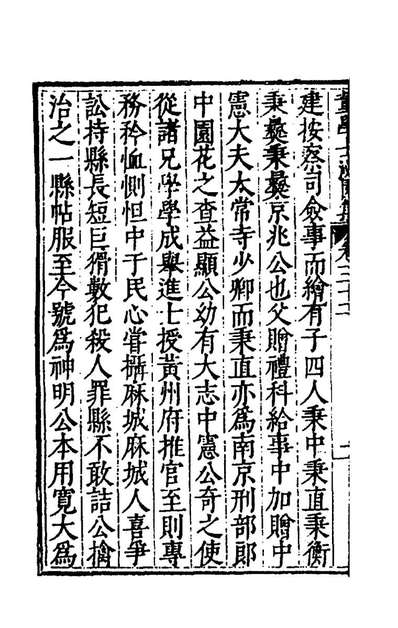 建按察司僉事而繪有子四人秉中秉直秉衡
秉彝秉彝京兆公也父贈禮科給事中加贈中
憲大夫太常寺少卿而秉直亦爲南京刑部郎
中園花之查益顯公幼有大志中憲公奇之使
從諸兄學學成舉進士授黃州府推官至則專
務矜恤惻怛中于民心嘗攝麻城麻城人喜爭
訟持縣長短巨猾數犯殺人罪縣不敢詰公擒
治之一縣帖服至今號爲神明公本用寬大爲